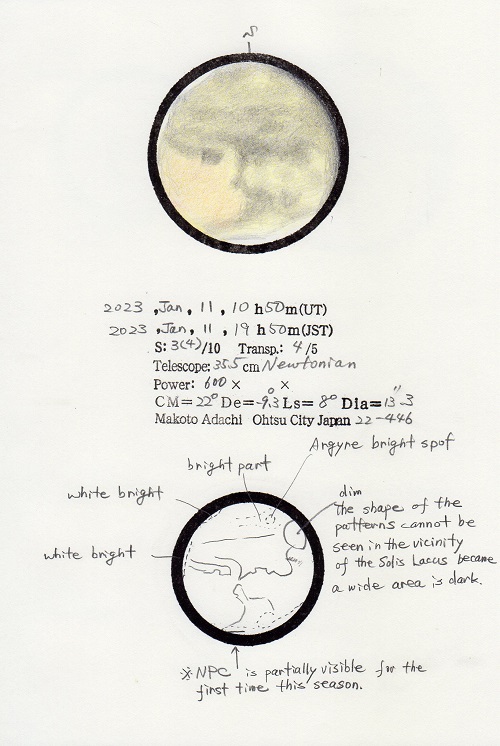 S
2023 ,Jan, 11, 10 h 50 m (UT)
2023 ,Jan, 11, 19 h 50 m (JST)
S: 3(4)/10 Transp.: 4/5
Telescope: 35.5 cm Newtonian
Power: 600 × ×
CM=22° De=-9.3° Ls= 8° Dia=13".3
Makoto Adachi Ohtsu City Japan 22-446
Argyre bright spot
bright part
white bright
dim
The shape of the
patterns cannot be
seen in the vicinity
of the Solis Lacus became
a wide area is dark.
white bright
※NPC is partially visible for the
first time this season.